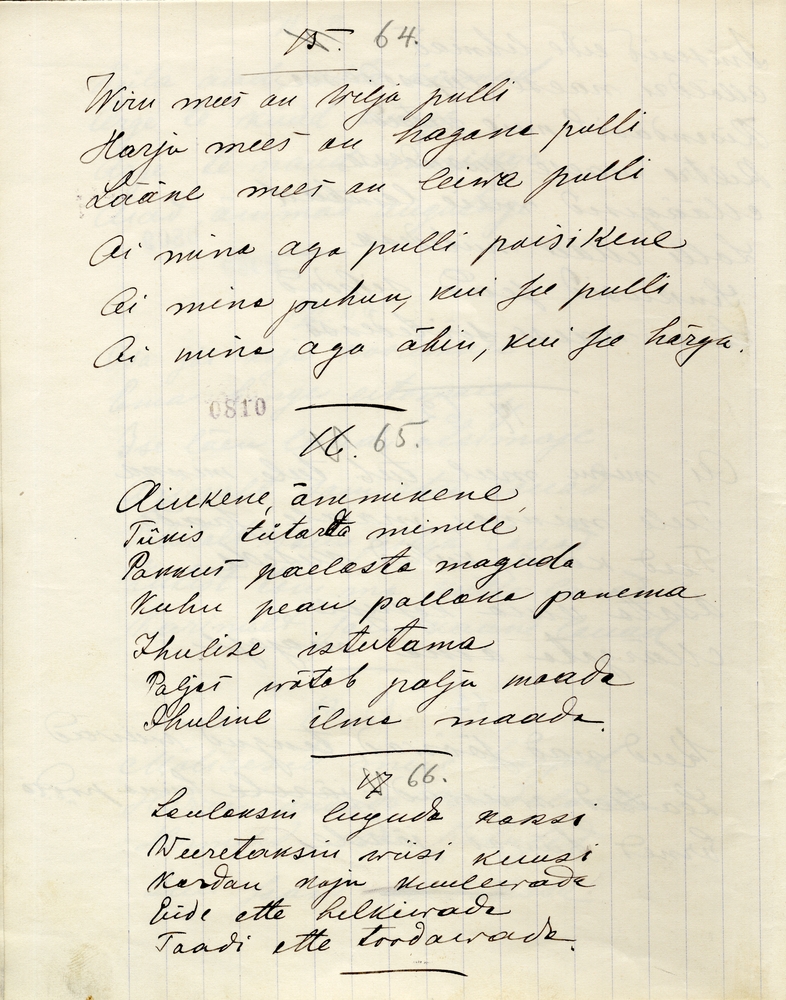 15. 64.
Wiru mees on wilja pulli
Harju mees on hagana pulli
Lääne mees on leiwa pulli
Ai mina aga pulli poisikene
Ai mina puhun, kui see pulli
Ai mina aga ähin, kui see härga.
0810
16. 65.
Ainkene, ämmikene,
Tükis tütarta minule
Pakkus paelasta maguda
Kuhu pean pallaka panema
Ihulise istutama
Paljas wõtab palju maada
Ihuline ilma maada.
17 66.
Laulaksin luguda kaksi
Weeretaksin wiisi kuusi
Kardan koju kuulewada
Eide ette helkiwada
Taadi ette toodawada.